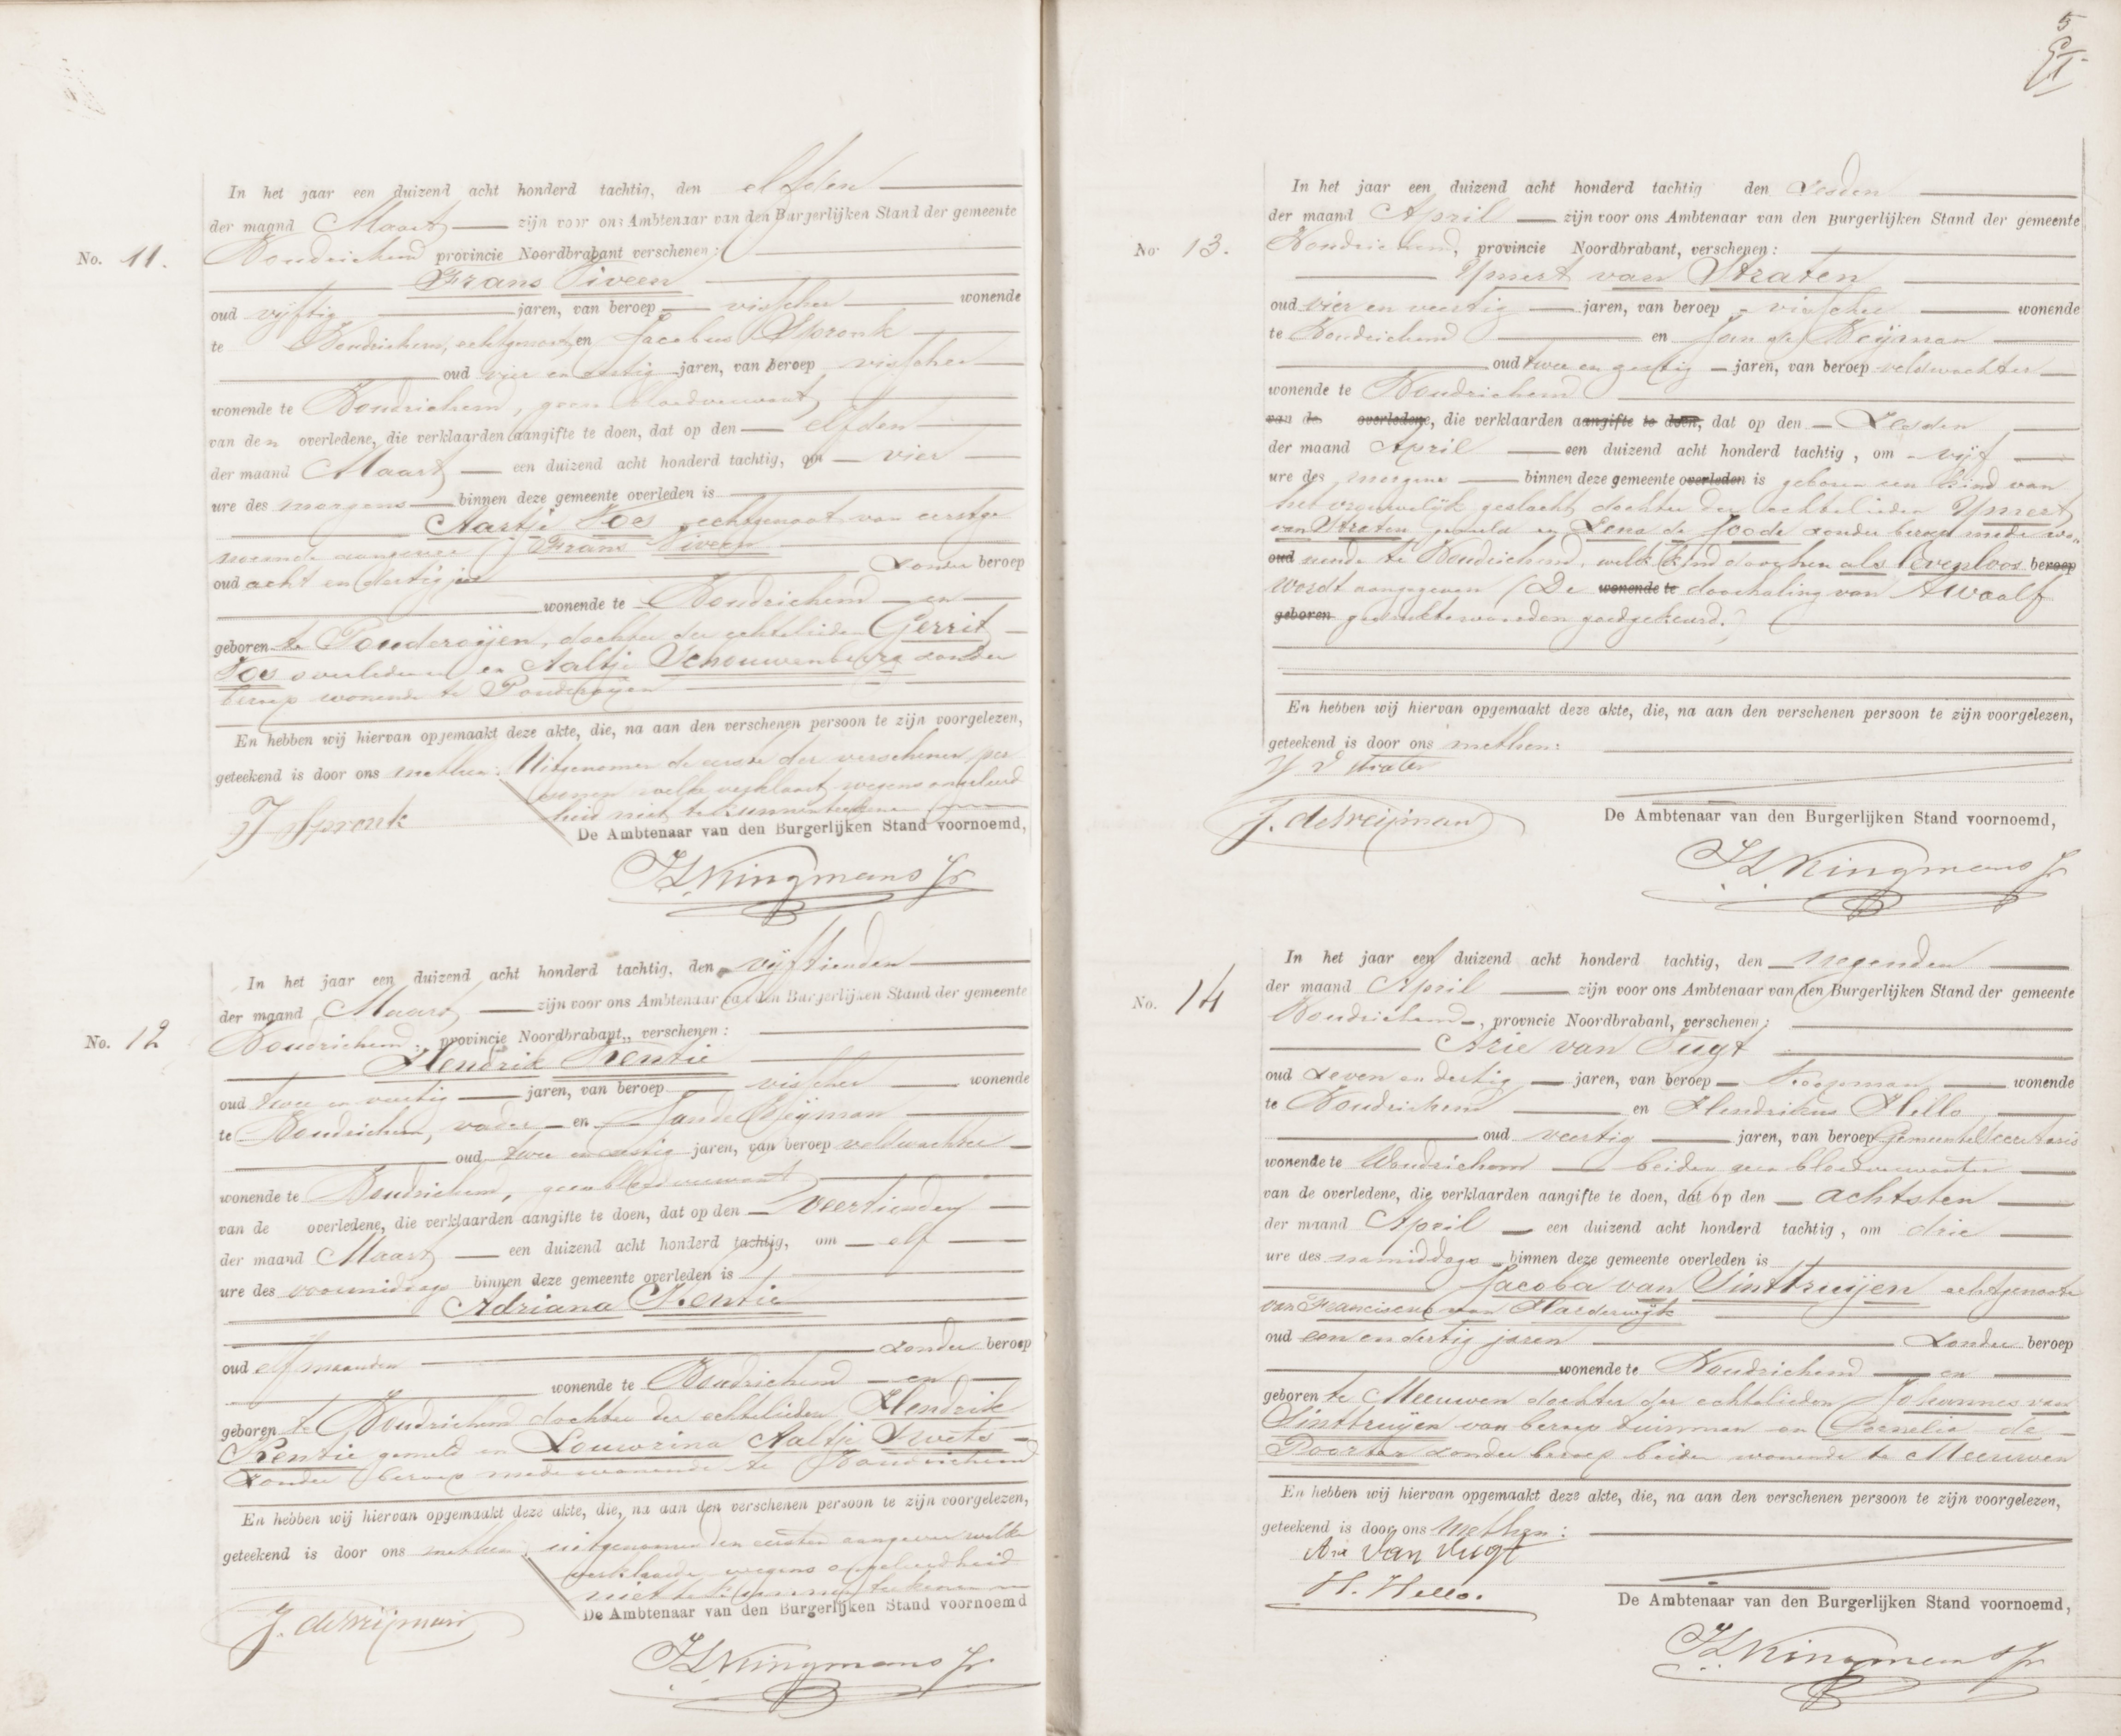 In het jaar een duizend acht honderd tachtig, den elfden
der maand Maart zijn voor ons Ambtenaar van den Burgerlijken Stand der gemeente
No. 11. Woudrichem provincie Noordbrabant verschenen:
Frans Viveen
oud vijftig jaren, van beroep visscher wonende
te Woudrichem, echtgenoot, en Jacobus Spronk
oud vier en dertig jaren, van beroep visscher
wonende te Woudrichem, geen bloedverwant
van den overledene, die verklaarden aangifte te doen, dat op den elfden
der maand Maart een duizend acht honderd tachtig, om vier
ure des morgens binnen deze gemeente overleden is
Aartje Vos echtgenoot van eerstge
noemde aangever Frans Viveen
oud acht en dertig jaar zonder beroep
wonende te Woudrichem en
geboren te Poederoijen, dochter der echtelieden Gerrit
Vos overleden en Aaltje Schouwenburg zonder
beroep wonende te Poederoijen
En hebben wij hiervan opgemaakt deze akte, die, na aan den verschenen persoon te zijn voorgelezen,
geteekend is door ons met hen. Uitgenomen de eerste der verschenen per
sonen welke verklaart wegens ongeleerd
heid niet te kunnen teekenen
J Spronk
De Ambtenaar van den Burgerlijken Stand voornoemd,
Kingmans Jr
In het jaar een duizend acht honderd tachtig, den vijftienden
der maand Maart zijn voor ons Ambtenaar van den Burgerlijken Stand der gemeente
No. 12 Woudrichem, provincie Noordbrabant, verschenen:
Hendrik Kentie
oud twee en veertig jaren, van beroep visscher wonende
te Woudrichem, vader en Jan de Weijman
oud twee en zestig jaren, van beroep veldwachter
wonende te Woudrichem, geen bloedverwant
van de overledene, die verklaarden aangifte te doen, dat op den veertienden
der maand Maart een duizend acht honderd tachtig, om elf
ure des voormiddags binnen deze gemeente overleden is
Adriana Kentie
oud elf maanden zonder beroep
wonende te Woudrichem en
geboren te Woudrichem dochter der echtelieden Hendrik
Kentie gemeld en Louwrina Aaltje Kwets
zonder beroep mede wonende te Woudrichem
En hebben wij hiervan opgemaakt deze akte, die, na aan den verschenen persoon te zijn voorgelezen,
geteekend is door ons met hen, uitgenomen den eersten aangever welke
verklaarde wegens ongeleerdheid
niet te kunnen teekenen
J. de Weijman
De Ambtenaar van den Burgerlijken Stand voornoemd
Kingmans Jr
5
In het jaar een duizend acht honderd tachtig den zesden
der maand April zijn voor ons Ambtenaar van den Burgerlijken Stand der gemeente
No. 13. Woudrichem, provincie Noordbrabant, verschenen:
Ypmert van Straten
oud vier en veertig jaren, van beroep visscher wonende
te Woudrichem en Jan de Weijman
oud twee en zestig jaren, van beroep veldwachter
wonende te Woudrichem
van de overledene, die verklaarden aangifte te doen, dat op den Zesden
der maand April een duizend acht honderd tachtig, om vijf
ure des morgens binnen deze gemeente overleden is geboren een kind van
het vrouwelijk geslacht dochter der echtelieden Ypmert
van Straten gemeld en Lena de Joode zonder beroep mede wo-
oud nende te Woudrichem, welk kind door hen als levenloos beroep
wordt aangegeven (De wonende te doorhaling van twaalf
geboren gedrukte woorden goedgekeurd.)
En hebben wij hiervan opgemaakt deze akte, die, na aan den verschenen persoon te zijn voorgelezen,
geteekend is door ons met hen:
Y v Straten
J. de Weijman
De Ambtenaar van den Burgerlijken Stand voornoemd,
Kingmans Jr
In het jaar een duizend acht honderd tachtig, den negenden
der maand April zijn voor ons Ambtenaar van den Burgerlijken Stand der gemeente
No. 14 Woudrichem, provncie Noordbrabant, verschenen:
Arie van Vugt
oud zeven en dertig jaren, van beroep Koopman wonende
te Woudrichem en Hendrikus Hello
oud veertig jaren, van beroep Gemeente Secretaris
wonende te Woudrichem beiden geen bloedverwanten
van de overledene, die verklaarden aangifte te doen, dat op den achtsten
der maand April een duizend acht honderd tachtig, om drie
ure des namiddags binnen deze gemeente overleden is
Jacoba van Sinttruijen echtgenoote
van Franciscus van Harderwijk
oud een en dertig jaren zonder beroep
wonende te Woudrichem en
geboren te Meeuwen dochter der echtelieden Johannes van
Sinttruijen van beroep tuinman en Cornelia de
Poorter zonder beroep beiden wonende te Meeuwen
En hebben wij hiervan opgemaakt deze akte, die, na aan den verschenen persoon te zijn voorgelezen,
geteekend is door ons met hen:
Arie van Vugt
H. Hello.
De Ambtenaar van den Burgerlijken Stand voornoemd,
Kingmans Jr